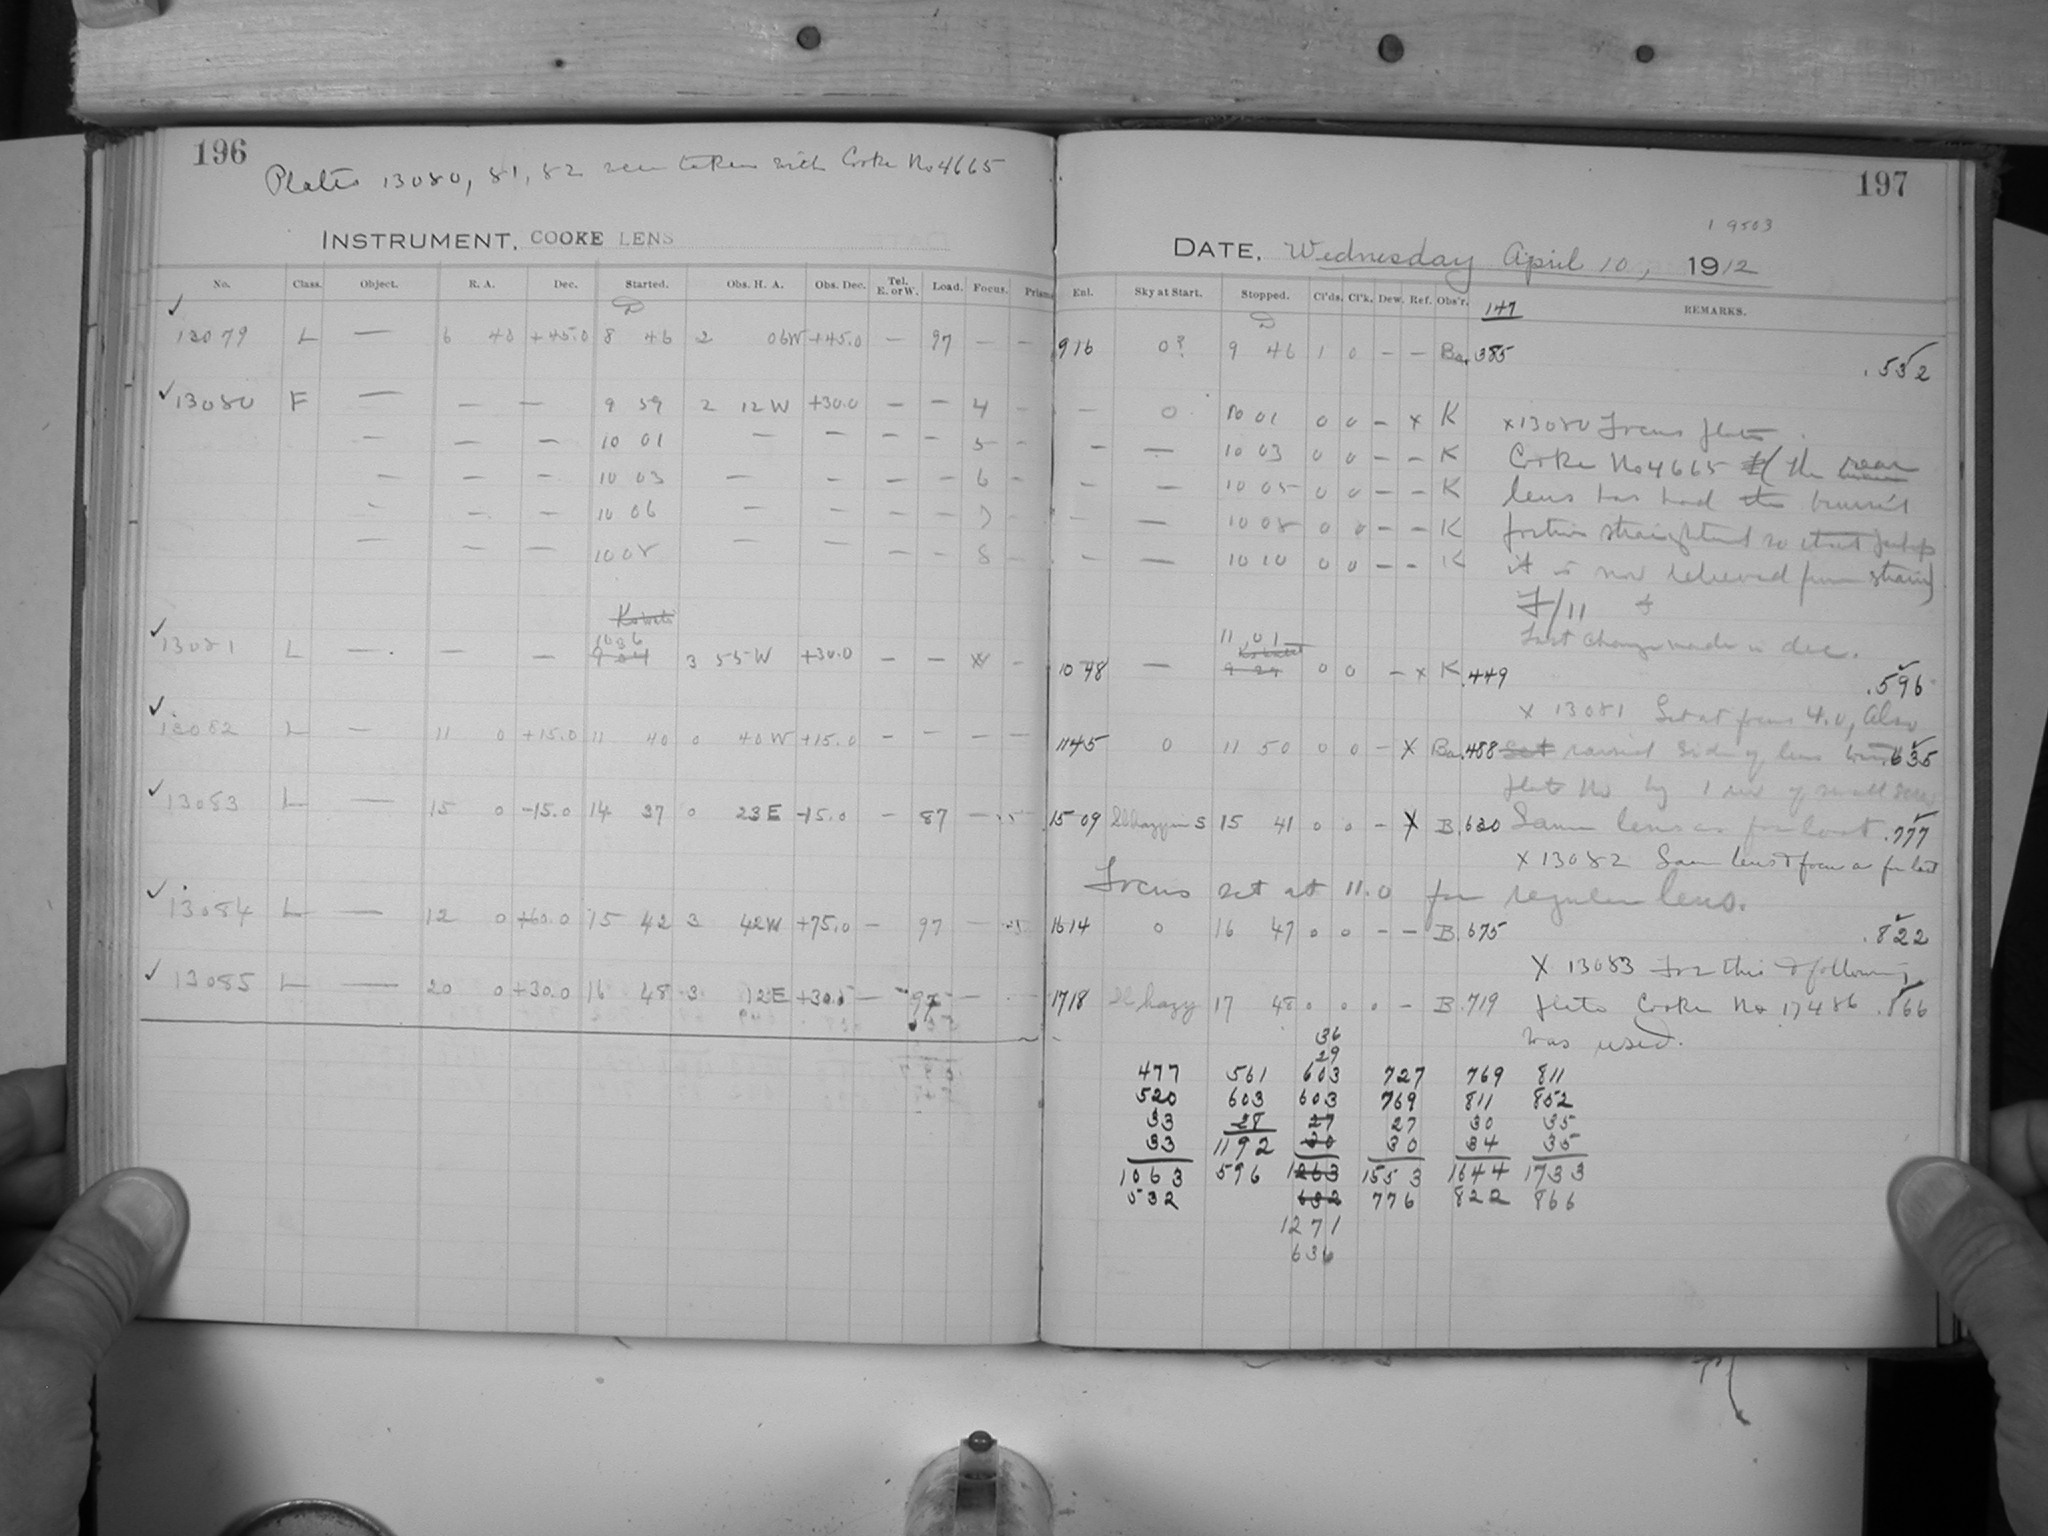 196
Plates 13080, 81, 82 were taken with Cooke No 4665
INSTRUMENT, COOKE LENS
No. Class. Object. R. A. Dec. Started. Obs. H. A. Obs. Dec. Tel. E. or W. Load. Focus. Prism.
13079 L — 6 43 +45.0 8 46 2 06W +45.0 — 97 — —
13080 F — — — 9 59 2 12W +30.0 — — 4 —
— — — 10 01 — — — — 5 —
— — — 10 03 — — — — 6 —
— — — 10 06 — — — — 7 —
— — — 10 08 — — — — 8 —
13081 L — — — 10 36 3 55W +30.0 — — x —
13082 L — 11 0 +15.0 11 40 0 40W +15.0 — — — —
13083 L — 15 0 -15.0 14 37 0 23E -15.0 — 87 —
13084 L — 12 0 15 42 3 42W +75.0 — 97 —
13085 L — 20 0 +30.0 16 48 3 12E +30.5 — 97 —
197
19503
DATE, Wednesday April 10, 1912
Enl. Sky at Start. Stopped. Cl'ds. Cl'k. Dew. Ref. Obs'r. 147 REMARKS.
916 0? 9 46 1 0 — — Ba .385 .532
— 0 10 01 0 0 — x K x13080 Focus plate
— — 10 03 0 0 — — K Cooke No 4665 (the rear
— — 10 05 0 0 — — K lens has had
— — 10 08 0 0 — — K straightened so that perhaps
— — 10 10 0 0 — — K it is now relieved from strain)
F/11
Last change made in dec.
1048 — 11 01 0 0 — x K .449 .596
x 13081 Set at focus 4.0, Also
1145 0 11 50 0 0 — x Ba .488 raised side of lens .635
plate No by 1 rev of small screw
1509 Sl hazy in S 15 41 0 0 — x B .630 Same lens as for last .777
x 13082 Same lens & focus as for last
Focus set at 11.0 for regular lens.
1614 0 16 47 0 0 — — B .675 .822
X 13083 For this & following
1718 Sl hazy 17 48 0 0 0 — B .719 plate Cooke No 17486 .866
was used.
36
29
477 561 603 727 769 811
520 603 603 769 811 852
33 28 27 27 30 35
33 1192 30 30 34 35
1063 596 1263 1553 1644 1733
532 632 776 822 866
1271
636